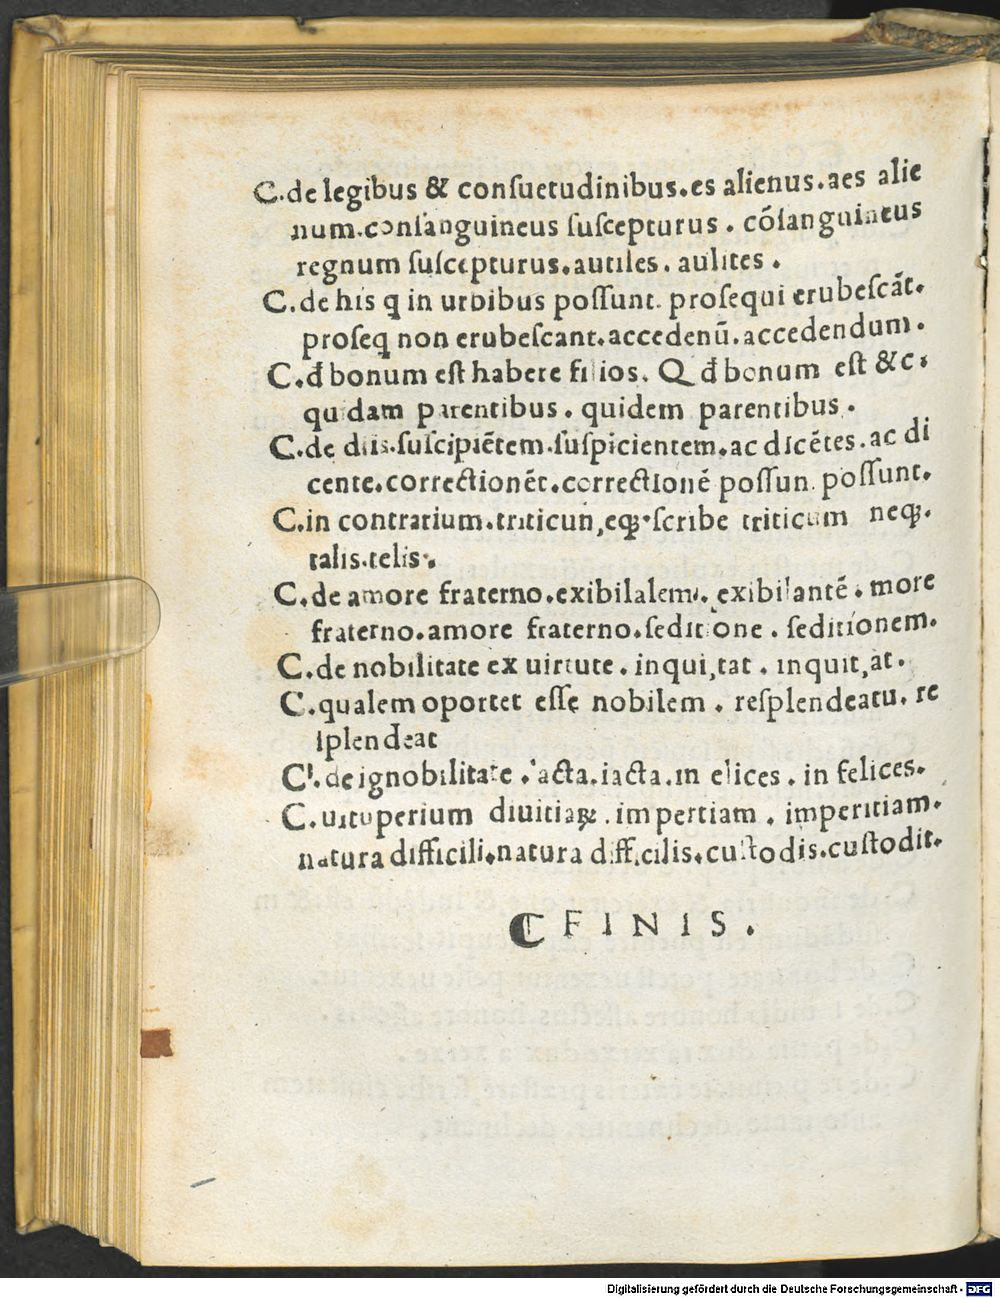 C.de legibus & conſuetudinibus.es alienus.aes alie
num.conſanguineus ſuſcepturus . cōſanguineus
regnum ſuſcepturus.autiles . aulites .
C.de his ꝗ in urbibus poſſunt. proſequi erubeſcāt.
proſeꝗ non erubeſcant.accedenū.accedendum.
C.đ bonum eſt habere filios. Q đ bonum eſt &c.
quidam parentibus . quidem parentibus .
C.de diis.ſuſcipiētem.ſuſpicientem.ac dicētes.ac di
cente.correctionēt.correctionē poſſun. poſſunt.
C.in contrarium.triticun,eqꝫ.ſcribe triticum neqꝫ.
talis.telis.
C.de amore fraterno.exibilalem. exibilantē . more
fraterno.amore fraterno.ſeditione . ſeditionem.
C.de nobilitate ex uirtute . inqui,tat . inquit,at .
C.qualem oportet eſſe nobilem . reſplendeatu. re
ſplendeat
C.de ignobilitate . acta.iacta.in elices . in felices.
C.uituperium diuitiaꝝ . impertiam . imperitiam.
natura difficili.natura difficilis.cuſtodis.cuſtodit.
C FINIS .
Digitalisierung gefördert durch die Deutsche Forschungsgemeinschaft - DFG